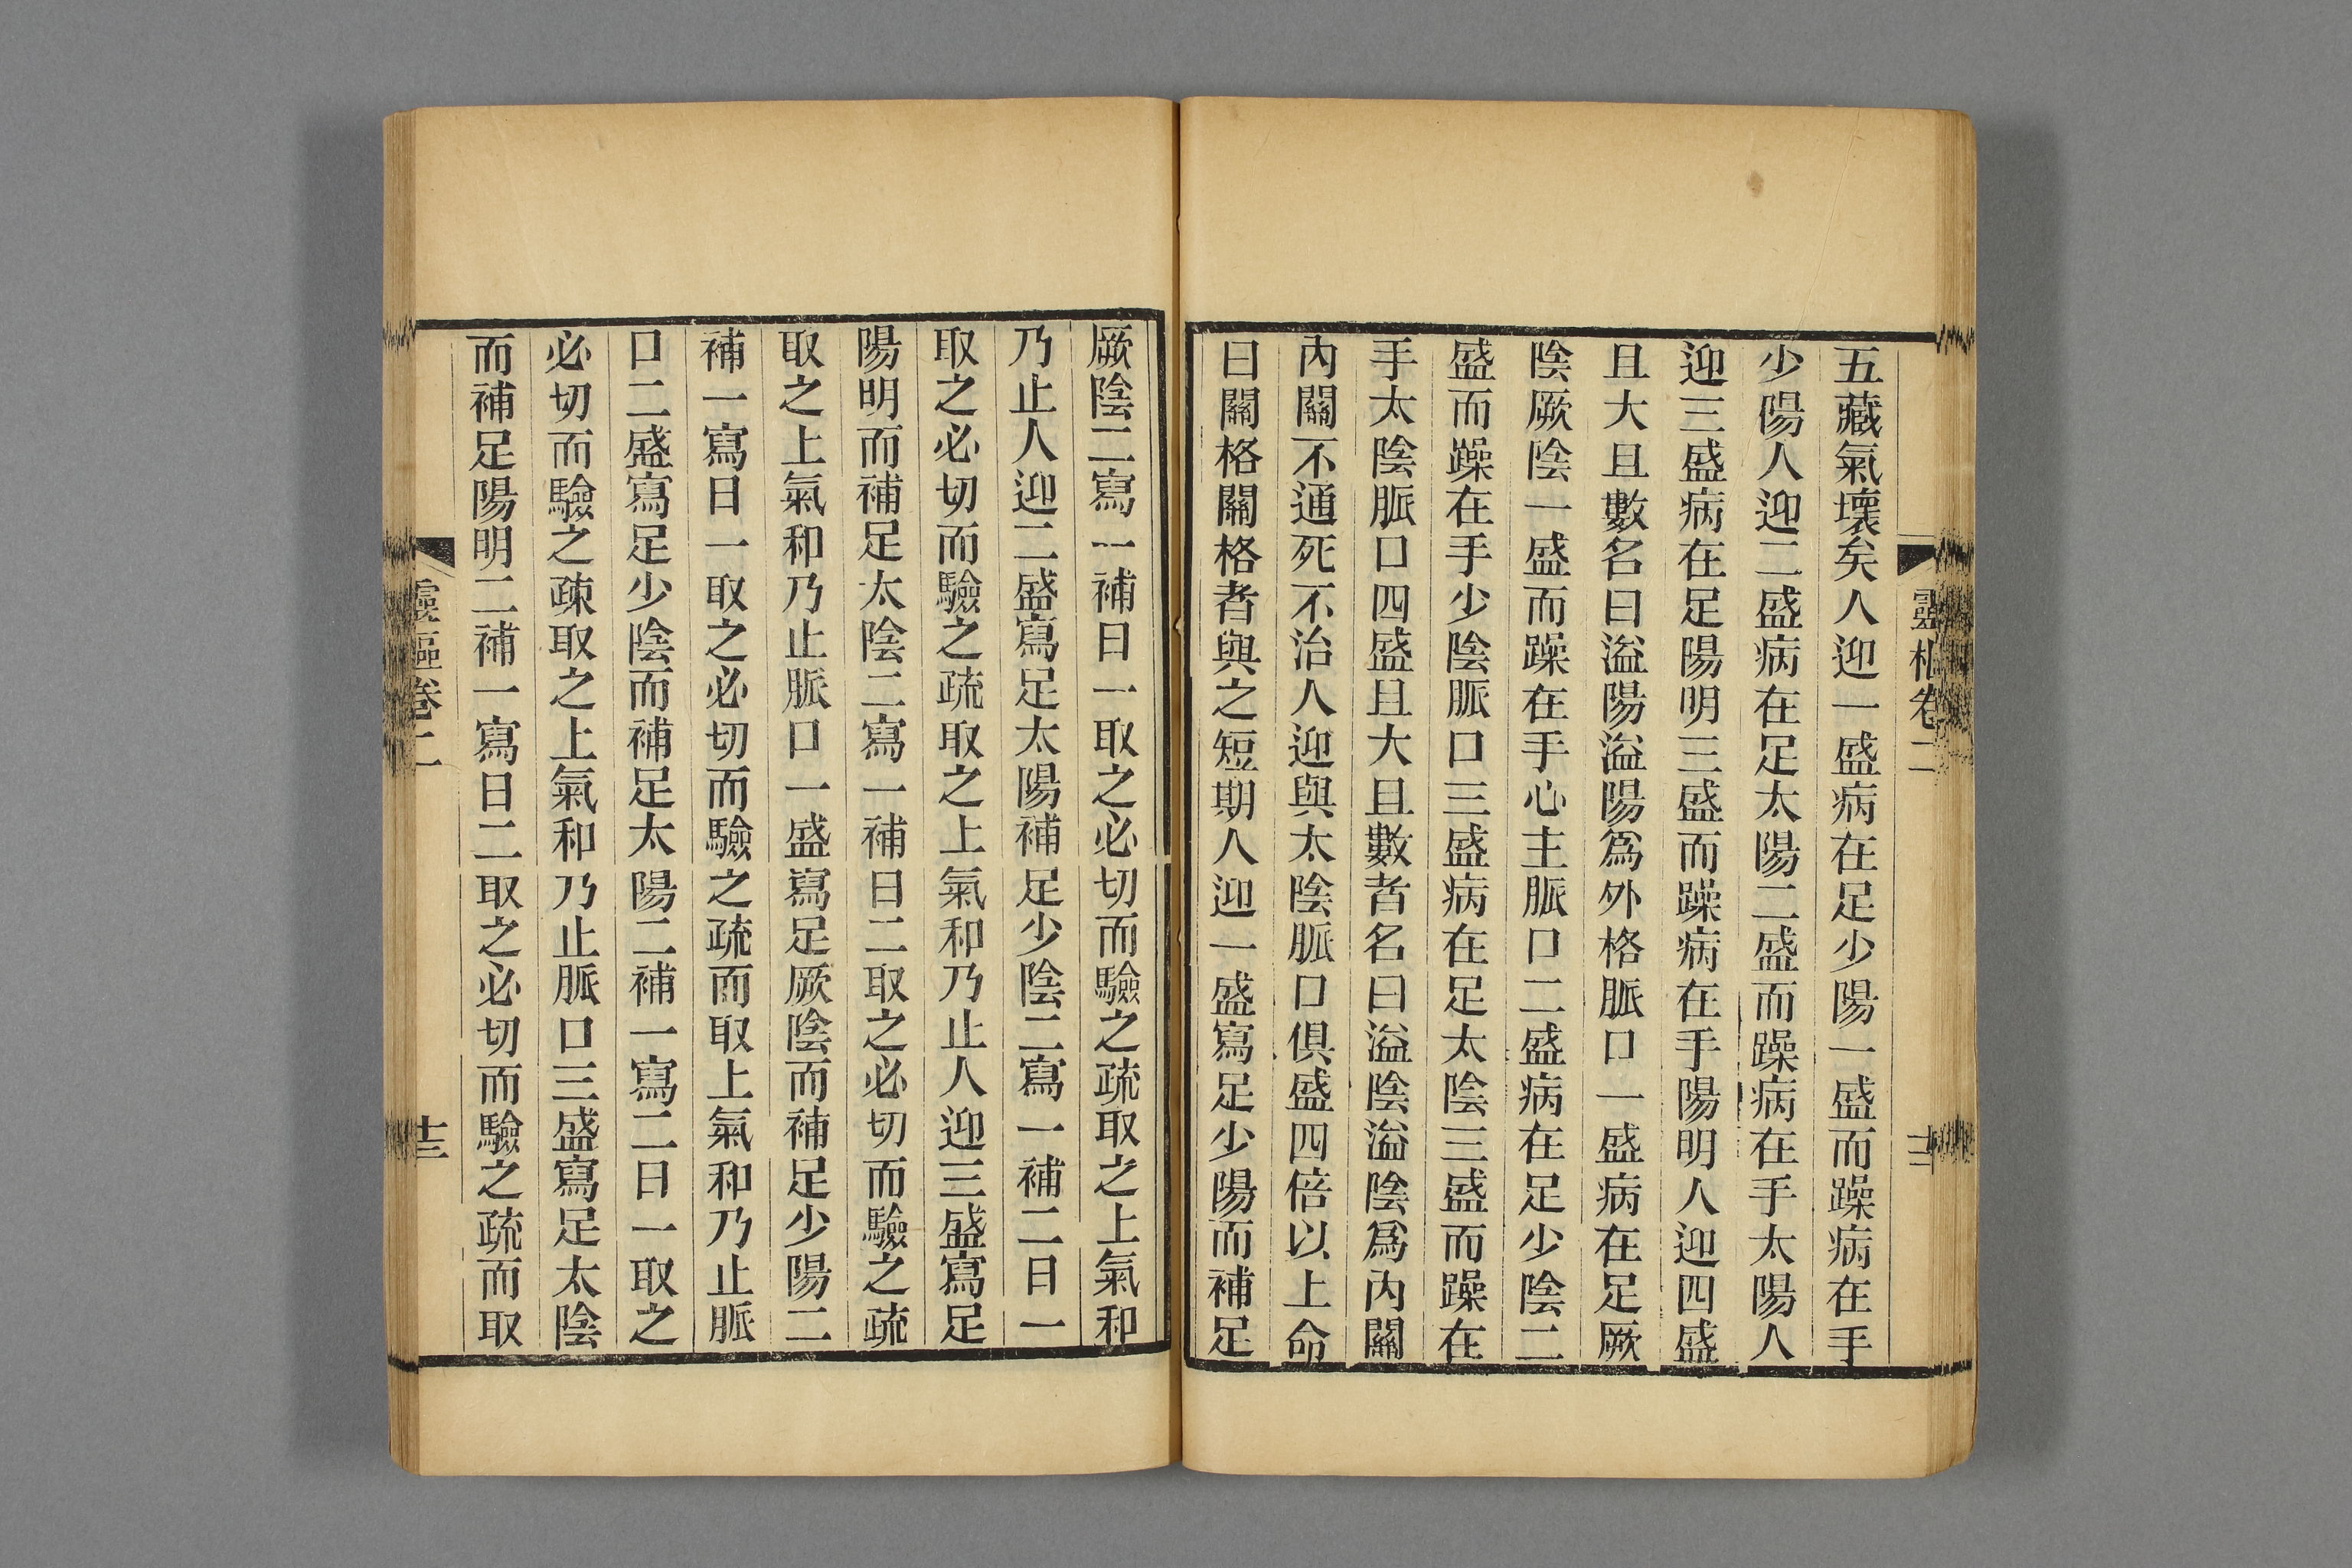 靈樞卷二
五藏氣壞矣人迎一盛病在足少陽一盛而躁病在手
少陽人迎二盛病在足太陽二盛而躁病在手太陽人
迎三盛病在足陽明三盛而躁病在手陽明人迎四盛
且大且數名曰溢陽溢陽爲外格脈口一盛病在足厥
陰厥陰一盛而躁在手心主脈口二盛病在足少陰二
盛而躁在手少陰脈口三盛病在足太陰三盛而躁在
手太陰脈口四盛且大且數者名曰溢陰溢陰爲內關
內關不通死不治人迎與太陰脈口俱盛四倍以上命
曰關格關格者與之短期人迎一盛寫足少陽而補足
厥陰二寫一補日一取之必切而驗之疏取之上氣和
乃止人迎二盛寫足太陽補足少陰二寫一補二日一
取之必切而驗之疏取之上氣和乃止人迎三盛寫足
陽明而補足太陰二寫一補日二取之必切而驗之疏
取之上氣和乃止脈口一盛寫足厥陰而補足少陽二
補一寫日一取之必切而驗之疏而取上氣和乃止脈
口二盛寫足少陰而補足太陽二補一寫二日一取之
必切而驗之疎取之上氣和乃止脈口三盛寫足太陰
而補足陽明二補一寫日二取之必切而驗之疏而取
靈樞卷二
十三